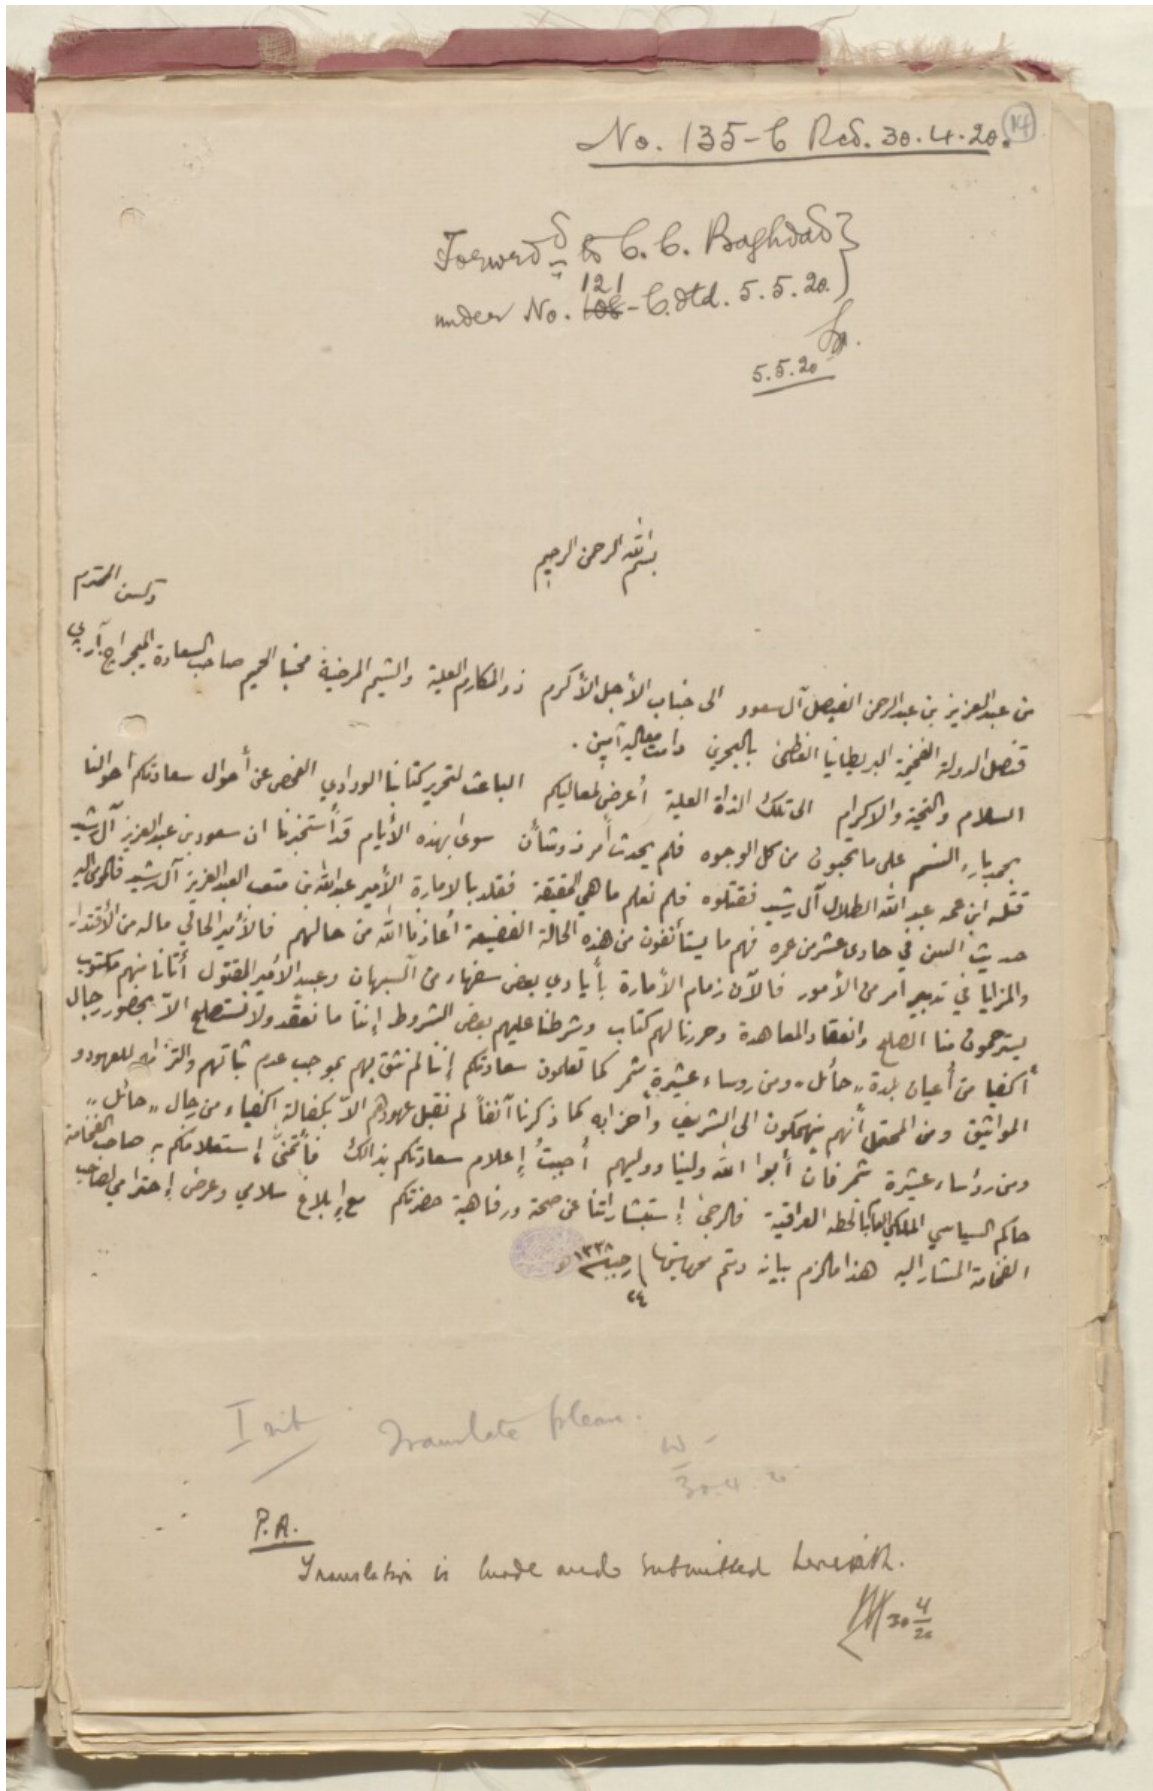 No. 135-C Rcd. 30.4.20.
14
Forwrd d to C. C. Baghdad
121
under No. 108-C. dtd. 5.5.20.
5.5.20
بسم الله الرحمن الرحيم
دكسن المحترم
من عبدالعزيز بن عبدالرحمن الفيصل آل سعود الى جناب الأجل الأكرم ذو المكارم العلية والشيم المرضية محبنا الحميم صاحب السعادة الميجر اچ آر پي
قنصل الدولة الفخيمة البريطانيا العظمى بالبحرين دامت معاليه آمين .
السلام والتحية والاكرام الى تلك الذاة العلية أعرض لمعاليكم الباعث لتحرير كتابنا الودادي الفحص عن أحوال سعادتكم أحوالنا
بحمد بارء النسم على ما تحبون من كل الوجوه فلم يحدث أمر ذو شأن سوى بهذه الأيام قد أستخبرنا ان سعود بن عبدالعزيز آل رشيد
قتله ابن عمه عبد الله الطلال آل رشيد فقتلوه فلم نعلم ما هي الحقيقة فقلد بالامارة الأمير عبدالله بن متعب العبدالعزيز آل رشيد فالموى اليه
حديث السن في حادى عشر من عمره فهم ما يستأنفون من هذه الحالة الفضيعة أعاذنا الله من حالهم فالأمير الحالي ماله من الأقتدار
والمزايا في تدبير امر من الأمور فالآن زمام الأمارة بأيادي بعض سفهاء من آلسبهان وعبيد الامير المقتول أتانا منهم مكتوب
يسترحمون منا الصلح وانعقاد المعاهدة وحررنا لهم كتاب وشرطنا عليهم بعض الشروط إننا ما نعقد ولا نستصلح الاّ بحضور رجال
أكفيا من أعيان بلدة ,,حائل,, ومن روساء عشيرة شمر كما تعلمون سعادتكم إننا لم نثق بهم بموجب عدم ثباتهم والتزامهم للعهود و
المواثيق ومن المحتمل أنهم ينهمكون الى الشريف وأحزابه كما ذكرنا آنفاً لم نقبل عهودهم الاّ بكفالة أكفياء من رجال ,,حائل,,
ومن رؤساء عشيرة شمر فان أبوا الله ولينا ووليهم أحببتُ إعلام سعادتكم بذالك فأتمنّى إستعلامكم به صاحب الفخامة
حاكم السياسي الملكي العام بالخطه العراقية فالرجى إستبشاراتنا عن صحة ورفاهية حضرتكم مع إبلاغ سلامي وعرض إحترامي لصاحب
الفخامة المشار اليه هذا مالزم بيانه ودتم محروسين
رجب ١٣٣٨ هـ
٢٤
Translate please.
30.4.20
P.A.
Translation is made and submitted herewith.
30 4/20